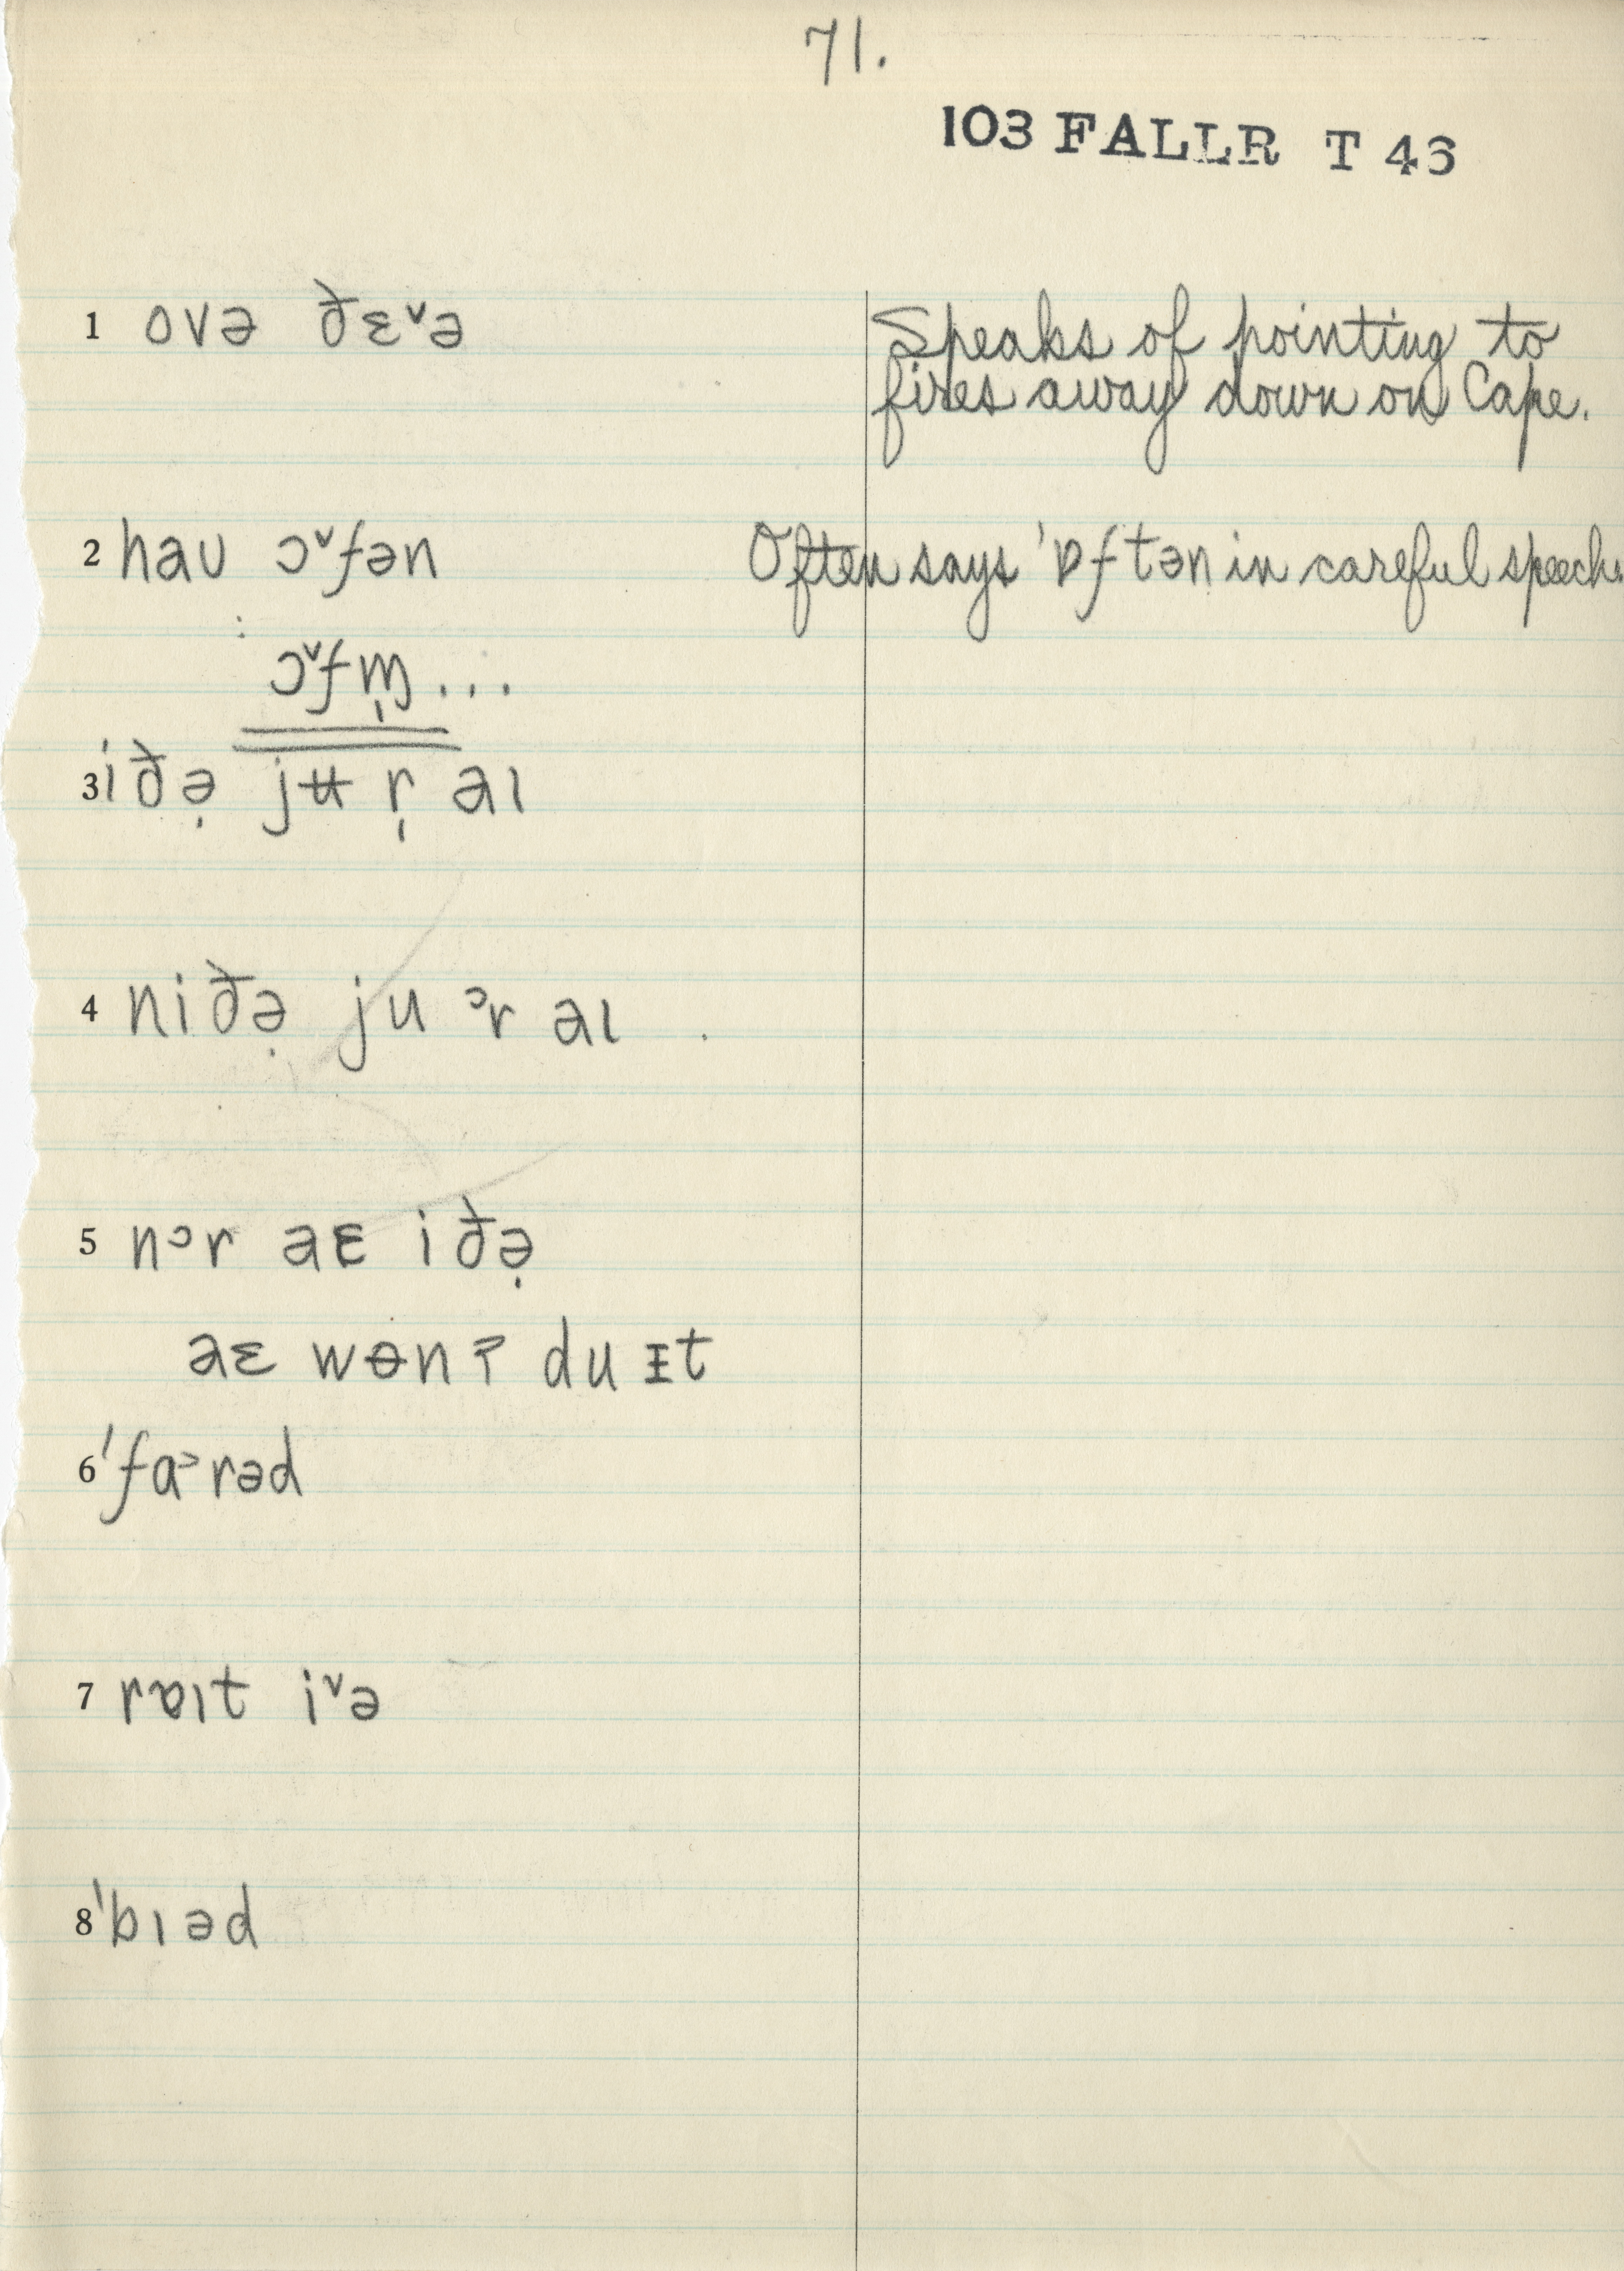 71.
103 FALLR T 46
1 ovə ðɛ˅ə
Speaks of pointing to
fires away down on Cape.
2 haʊ ɔ˅fən
Often says ˈɒftən in careful speech.
: ɔ˅fɱ̩...
3 iðə̣ jʉ r̩ aɪ
4 niðə̣ ju ᵊr aɪ
5 nᵊr aɛ iðə̣
aɛ wɵnʔ du ᵻt
6 ˈfɑ˃rəd
7 rɒɪt i˅ə
8 ˈbɪəd